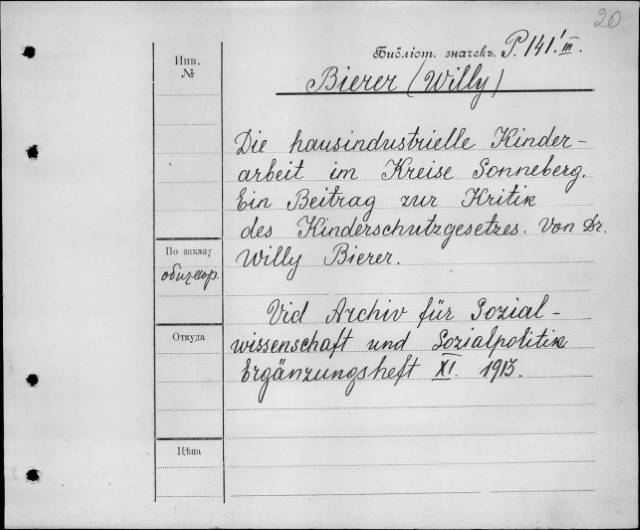 20
Библіот. значекъ. P. 141.' III.
Инв.
№
Bierer (Willy)
Die hausindustrielle Kinder-
arbeit im Kreise Sonneberg.
Ein Beitrag zur Kritik
des Kinderschutzgesetzes. Von Dr.
Willy Bierer.
По заказу
Vid Archiv für Sozial-
wissenschaft und Sozialpolitik
Ergänzungsheft XI. 1913.
Откуда
Цѣна